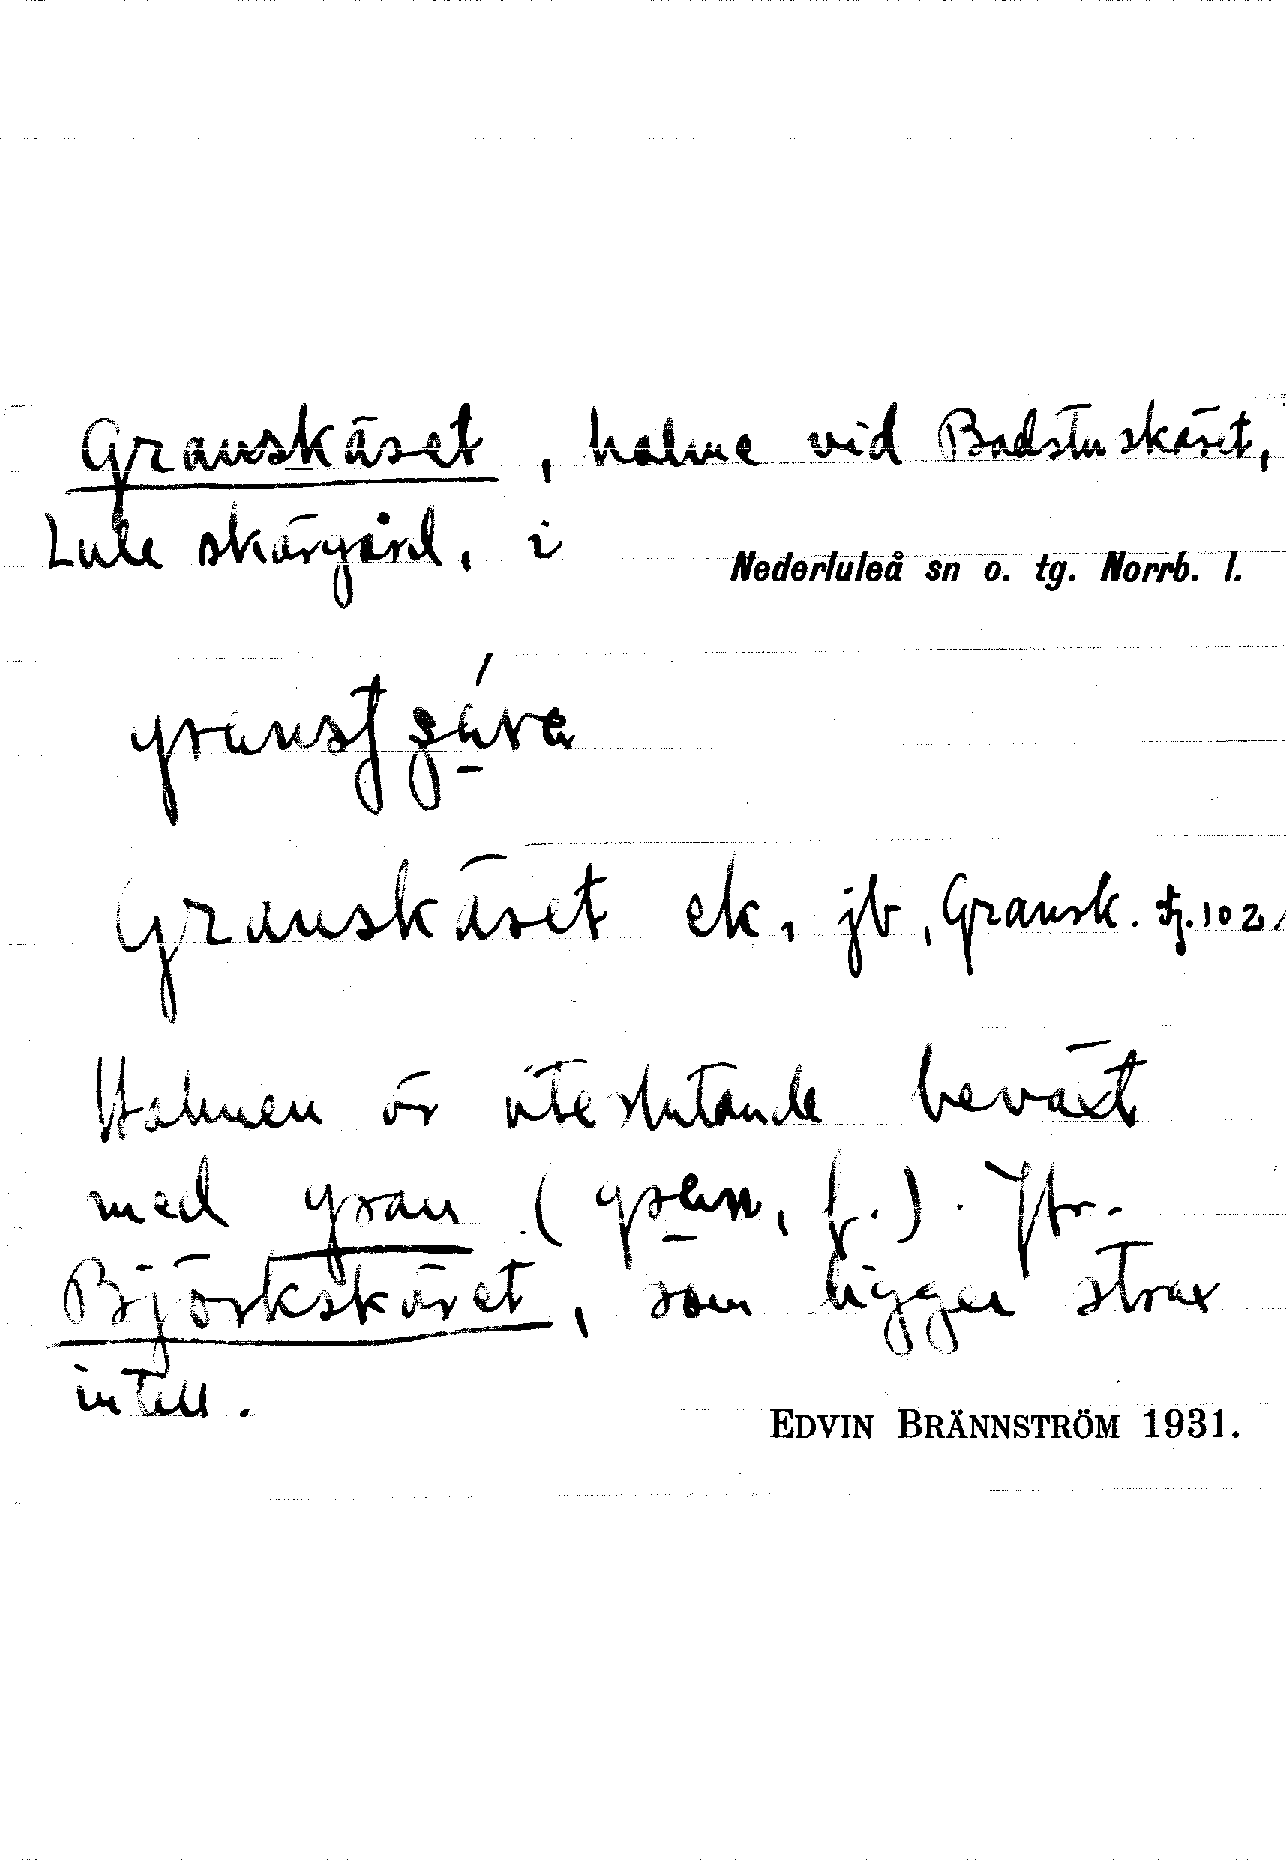 Granskäret, holme vid Badstuskäret,
Lule skärgård, i Nederluleå sn o. tg. Norrb. l.
Granskäret ek, jb, Gransk. tj. 102.
Holmen är uteslutande beväxt
med gran (gran, f.). Jfr.
Björkskäret, som ligger strax
intill.
EDVIN BRÄNNSTRÖM 1931.